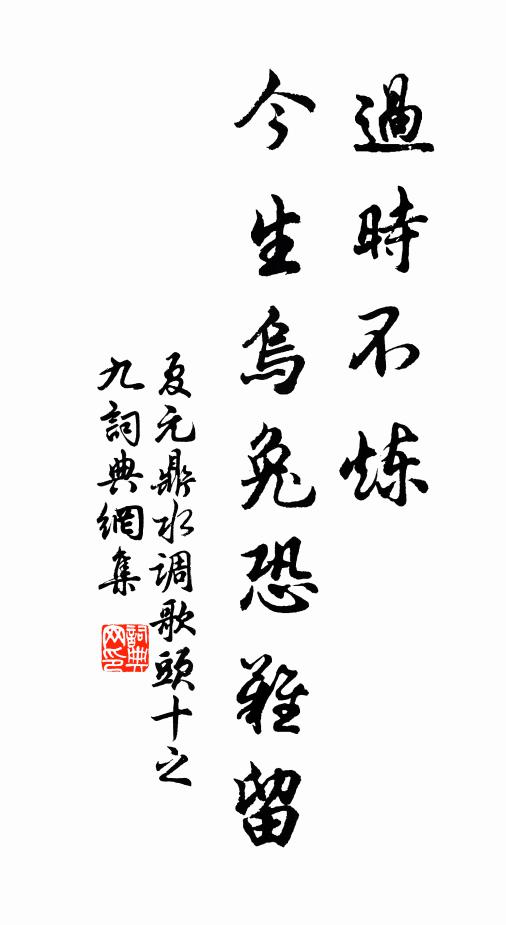 過時不炼
今生烏兔恐難留
夏元鼎水调歌頭十之
九詞典網集
詞典網印